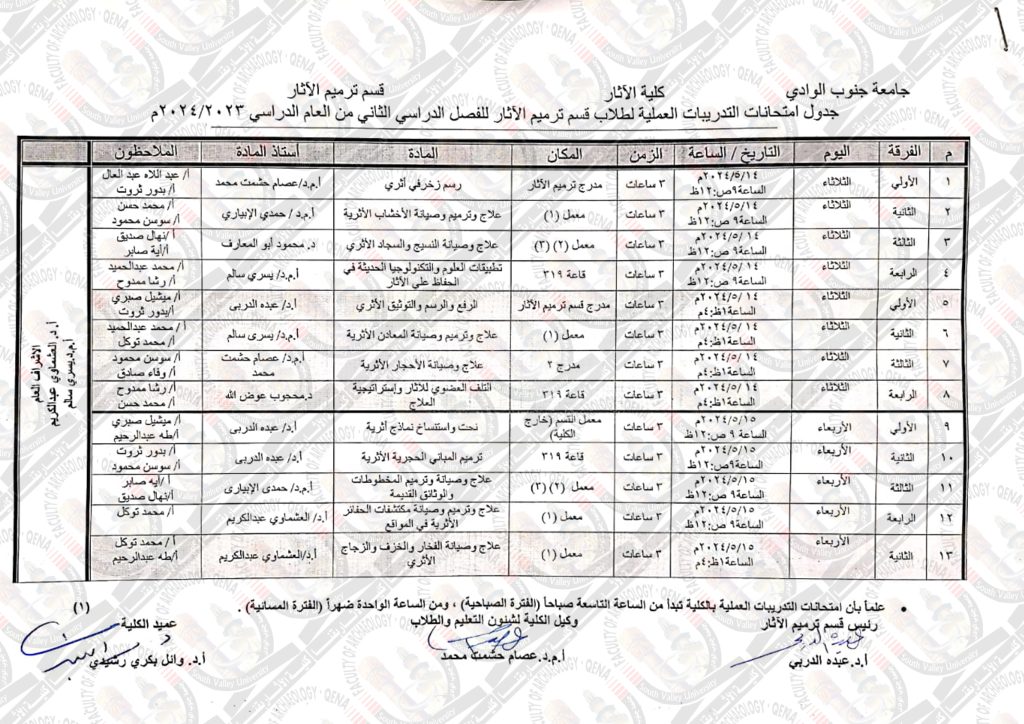 جامعة جنوب الوادي كلية الآثار قسم ترميم الآثار
جدول امتحانات التدريبات العملية لطلاب قسم ترميم الآثار للفصل الدراسي الثاني من العام الدراسي ٢٠٢٤/٢٠٢٣م
م الفرقة اليوم التاريخ / الساعة الزمن المكان المادة أستاذ المادة الملاحظون
١ الأولي الثلاثاء ٢٠٢٤/٥/١٤م الساعة ٩ص:١٢ظ ٣ ساعات مدرج ترميم الآثار رسم زخرفي أثري أ.م.د/عصام حشمت محمد أ/ عبد اللاه عبد العال أ/ بدور ثروت
٢ الثانية الثلاثاء ٢٠٢٤/٥/١٤م الساعة ٩ ص:١٢ظ ٣ ساعات معمل (١) علاج وترميم وصيانة الأخشاب الأثرية أ.م.د/ حمدي الإبياري أ/ محمد حسن أ/ سوسن محمود
٣ الثالثة الثلاثاء ٢٠٢٤/٥/١٤م الساعة ٩ ص:١٢ظ ٣ ساعات معمل (٢) (٣) علاج وصيانة النسيج والسجاد الأثري د. محمود أبو المعارف أ/نهال صديق أ/آية صابر
٤ الرابعة الثلاثاء ٢٠٢٤/٥/١٤م الساعة ٩ ص:١٢ظ ٣ ساعات قاعة ٣١٩ تطبيقات العلوم والتكنولوجيا الحديثة في الحفاظ علي الآثار أ.م.د/ يسري سالم أ/ محمد عبدالحميد أ/ رشا ممدوح
٥ الأولي الثلاثاء ٢٠٢٤/٥/١٤م الساعة ١ظ:٤م ٣ ساعات مدرج قسم ترميم الآثار الرفع والرسم والتوثيق الأثري أ.د/ عبده الدربى أ/ ميشيل صبري أ/بدور ثروت
٦ الثانية الثلاثاء ٢٠٢٤/٥/١٤م الساعة ١ظ:٤م ٣ ساعات معمل (١) علاج وترميم وصيانة المعادن الأثرية أ.م.د/ يسرى سالم أ/ محمد عبدالحميد أ/ محمد توكل
٧ الثالثة الثلاثاء ٢٠٢٤/٥/١٤م الساعة ١ظ:٤م ٣ ساعات مدرج ٢ علاج وصيانة الأحجار الأثرية أ.م.د/ عصام حشمت محمد أ/ سوسن محمود أ/ وفاء صادق
٨ الرابعة الثلاثاء ٢٠٢٤/٥/١٤م الساعة ١ظ:٤م ٣ ساعات قاعة ٣١٩ التلف العضوي للآثار وإستراتيجية العلاج د.محجوب عوض الله أ/ رشا ممدوح أ/ محمد حسن
٩ الأولي الأربعاء ٢٠٢٤/٥/١٥م الساعة ٩ ص:١٢ظ ٣ ساعات معمل القسم (خارج الكلية) نحت واستنساخ نماذج أثرية أ.د/ عبده الدربى أ/ ميشيل صبري أ/طه عبدالرحيم
١٠ الثانية الأربعاء ٢٠٢٤/٥/١٥م الساعة ٩ص:١٢ظ ٣ ساعات قاعة ٣١٩ ترميم المباني الحجرية الأثرية أ.د/ عبده الدربى أ/ بدور ثروت أ/ سوسن محمود
١١ الثالثة الأربعاء ٢٠٢٤/٥/١٥م الساعة ٩ص:١٢ظ ٣ ساعات معمل (٢) (٣) علاج وصيانة وترميم المخطوطات والوثائق القديمة أ.م.د/ حمدى الإبيارى أ /أيه صابر أ/نهال صديق
١٢ الرابعة الأربعاء ٢٠٢٤/٥/١٥م الساعة ٩ص:١٢ظ ٣ ساعات معمل (١) علاج وترميم وصيانة مكتشفات الحفائر الأثرية في المواقع أ.د/ العشماوي عبدالكريم أ/ محمد توكل
١٣ الثانية الأربعاء ٢٠٢٤/٥/١٥م الساعة ١ظ:٤م ٣ ساعات معمل (١) علاج وصيانة الفخار والخزف والزجاج الأثري أ.د/العشماوي عبدالكريم أ/ محمد توكل أ/طه عبدالرحيم
الاشراف العام
أ.م.د.يسري سالم
أ.د.العشماوي عبدالكريم
علماً بان امتحانات التدريبات العملية بالكلية تبدأ من الساعة التاسعة صباحاً (الفترة الصباحية) ، ومن الساعة الواحدة ضهراً (الفترة المسائية) . (١)
رئيس قسم ترميم الآثار وكيل الكلية لشئون التعليم والطلاب عميد الكلية
أ.د.عبده الدربي أ.م.د. عصام حشمت محمد أ.د. وائل بكري رشيدي
FACULTY OF ARCHAEOLOGY - QENA
South Valley University